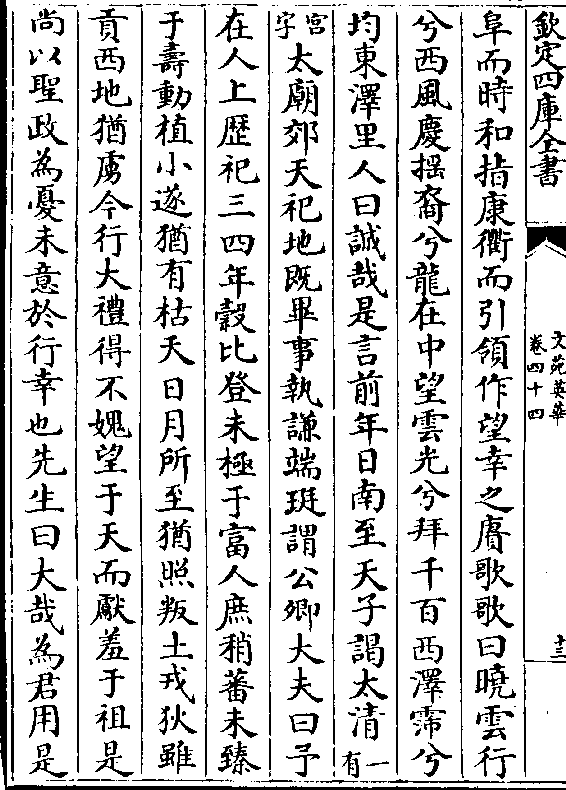 欽定四庫全書
文苑英華
卷四十四
十三
阜而時和指康衢而引領作望幸之賡歌歌曰曉雲行
兮西風慶揺裔兮龍在中望雲光兮拜千百西澤霈兮
均東澤里人曰誠哉是言前年日南至天子謁太清一有
宮字太廟郊天祀地既畢事執謙端珽謂公卿大夫曰予
在人上歴祀三四年糓比登未極于富人庶稍蕃未臻
于壽動植小遂猶有枯夭日月所至猶照叛土戎狄雖
貢西地猶虜今行大禮得不媿望于天而獻羞于祖是
尚以聖政為憂未意於行幸也先生曰大哉為君用是